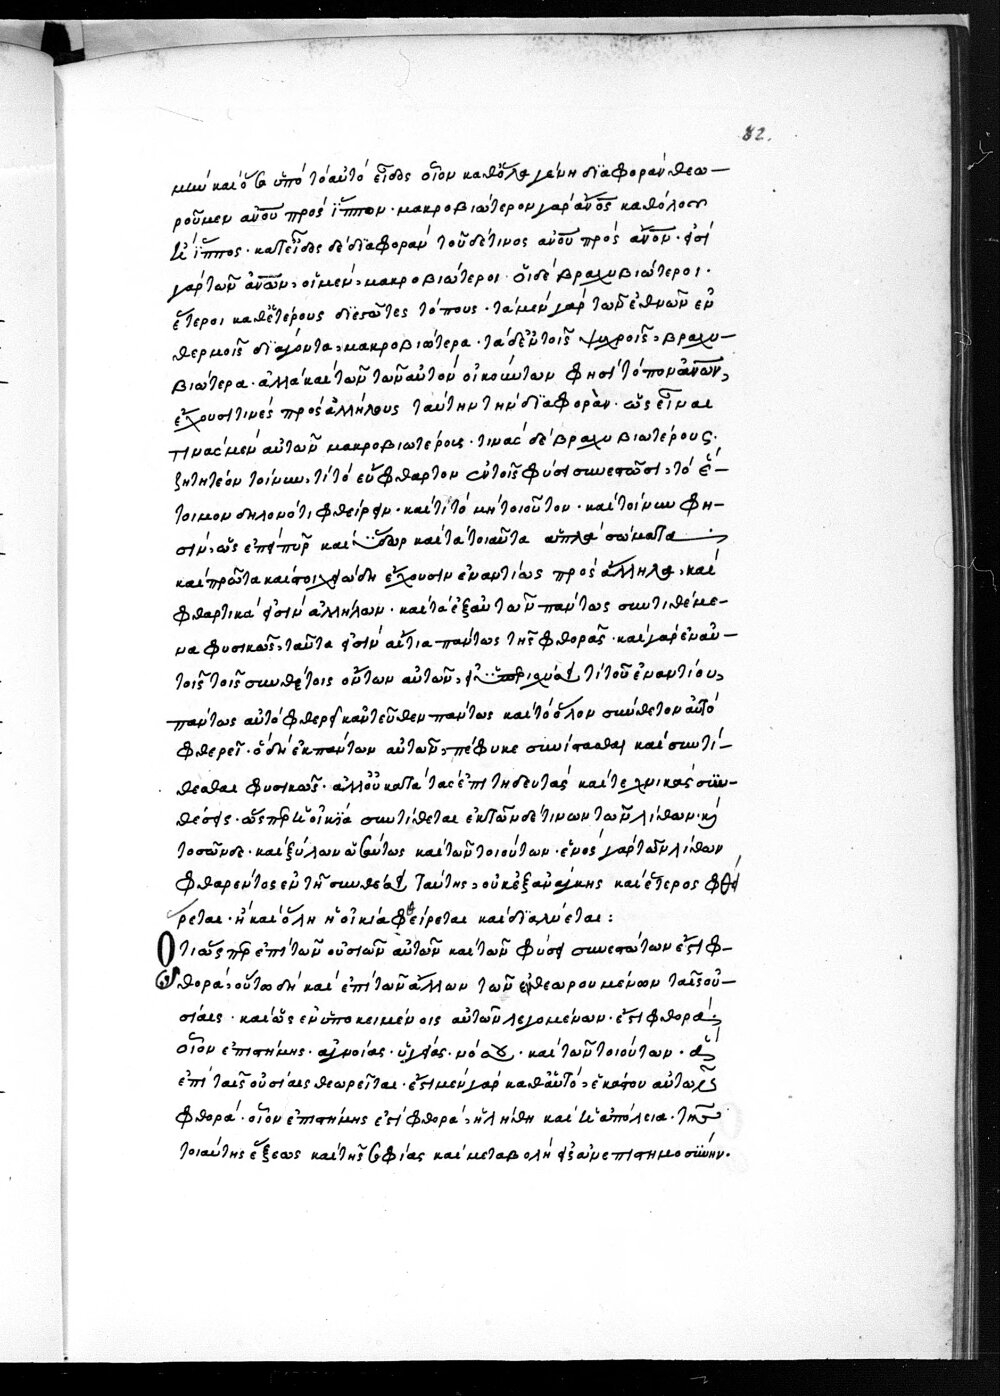 82.
μὴν καὶ ὅσα ὑπὸ τὸ αὐτὸ εἶδος οἷον καθόλου γένη διαφορὰν θεω-
ροῦμεν ἀνοῦ πρὸς ἵππον· μακροβιώτερον γὰρ ἀνὸς καθόλου
ἢ ἵππος· κατεῖδος δὲ διαφορὰν τοῦδέ τινος ἀνοῦ πρὸς ἀνον· εἰσὶ
γὰρ τῶν ἀνῶν, οἱ μὲν, μακροβιώτεροι· οἱ δὲ βραχυβιώτεροι·
ἕτεροι καθετέρους διεστῶτες τόπους· τὰ μὲν γὰρ τῶν ἐθνῶν ἐν
θερμοῖς διάγοντα, μακροβιώτερα· τὰ δ' ἐν τοῖς ψυχροῖς, βραχυ-
βιώτερα· ἀλλὰ καὶ τῶν τὸν αὐτὸν οἰκούντων φησὶ τόπον ἀνῶν,
ἔχουσί τινες πρὸς ἀλλήλους ταύτην τὴν διαφορὰν· ὡς εἶναι
τινὰς μὲν αὐτῶν μακροβιωτέρους· τινὰς δὲ βραχυβιωτέρους·
ζητητέον τοίνυν, τί τὸ εὔφθαρτον ἐν τοῖς φύσει συνεστῶσι, τὸ ἕ-
τοιμον δηλονότι φθείρειν· καὶ τί τὸ μὴ τοιοῦτον· καὶ τοίνυν φη-
σὶν, ὡς ἐπεὶ πῦρ καὶ ὕδωρ καὶ τὰ τοιαῦτα ἁπλᾶ σώματα
καὶ πρῶτα καὶ στοιχειώδη ἔχουσιν ἐναντίως πρὸς ἄλληλα, καὶ
φθαρτικά εἰσιν ἀλλήλων· καὶ τὰ ἐξ αὐτῶν πάντως συντιθέμε-
να φυσικῶς, ταῦτα εἰσὶν αἴτια πάντως τῆς φθορᾶς· καὶ γὰρ ἐν αὐ-
τοῖς τοῖς συνθέτοις ὄντων αὐτῶν, εἰ ὑπερισχύσει τὶ τοῦ ἐναντίου,
πάντως αὐτὸ φθερεῖ κἀντεῦθεν πάντως καὶ τὸ ὅλον σύνθετον αὐτὸ
φθερεῖ· ὃ δὴ ἐκ πάντων αὐτῶν, πέφυκε συνίστασθαι καὶ συντί-
θεσθαι φυσικῶς· ἀλλ' οὐ κατὰ τὰς ἐπιτηδευτὰς καὶ τεχνικὰς συν-
θέσεις· ὥσπερ ἡ οἰκία συντίθεται ἐκ τῶνδέ τινων τῶν λίθων· καὶ
τοσῶνδε· καὶ ξύλων ὡσαύτως καὶ τῶν τοιούτων· ἑνὸς γὰρ τῶν λίθων
φθαρέντος ἐν τῇ συνθέσει ταύτης, οὐκ ἐξανάγκης καὶ ἕτερος φθεί-
ρεται· ἢ καὶ ὅλη ἡ οἰκία φθείρεται καὶ διαλύεται:
Ὅτι ὥσπερ ἐπὶ τῶν οὐσιῶν αὐτῶν καὶ τῶν φύσει συνεστώτων ἐστὶ φ-
θορὰ, οὕτω δὴ καὶ ἐπὶ τῶν ἄλλων τῶν ἐνθεωρουμένων ταῖς οὐ-
σίαις· καὶ ὡς ἐν ὑποκειμένοις αὐτῶν λεγομένων· ἐστὶ φθορὰ,
οἷον ἐπιστήμης· ἀγνοίας· ὑγείας· νόσου· καὶ τῶν τοιούτων· ἃ
ἐπὶ ταῖς οὐσίαις θεωρεῖται· ἔστι μὲν γὰρ καθαὑτὸ, ἑκάστου αὐτῶν
φθορά· οἷον ἐπιστήμης ἐστὶ φθορὰ, ἡ λήθη καὶ ἡ ἀπόλεια· τῆς
τοιαύτης ἕξεως καὶ τῆς σοφίας καὶ μεταβολὴ εἰς ἀνεπιστημοσύνην·